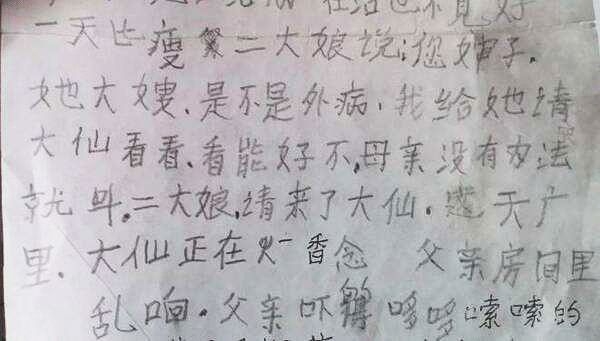 在治也不見好
一天比瘦 二大娘说:您婶子.
她大嫂.是不是外病.我给她请
大仙看看.看能好不,母亲没有办法
就叫.二大娘,请来了大仙. 天广
里.大仙正在火一香念 父亲房间里
乱响.父亲吓的哆哆嗦嗦的